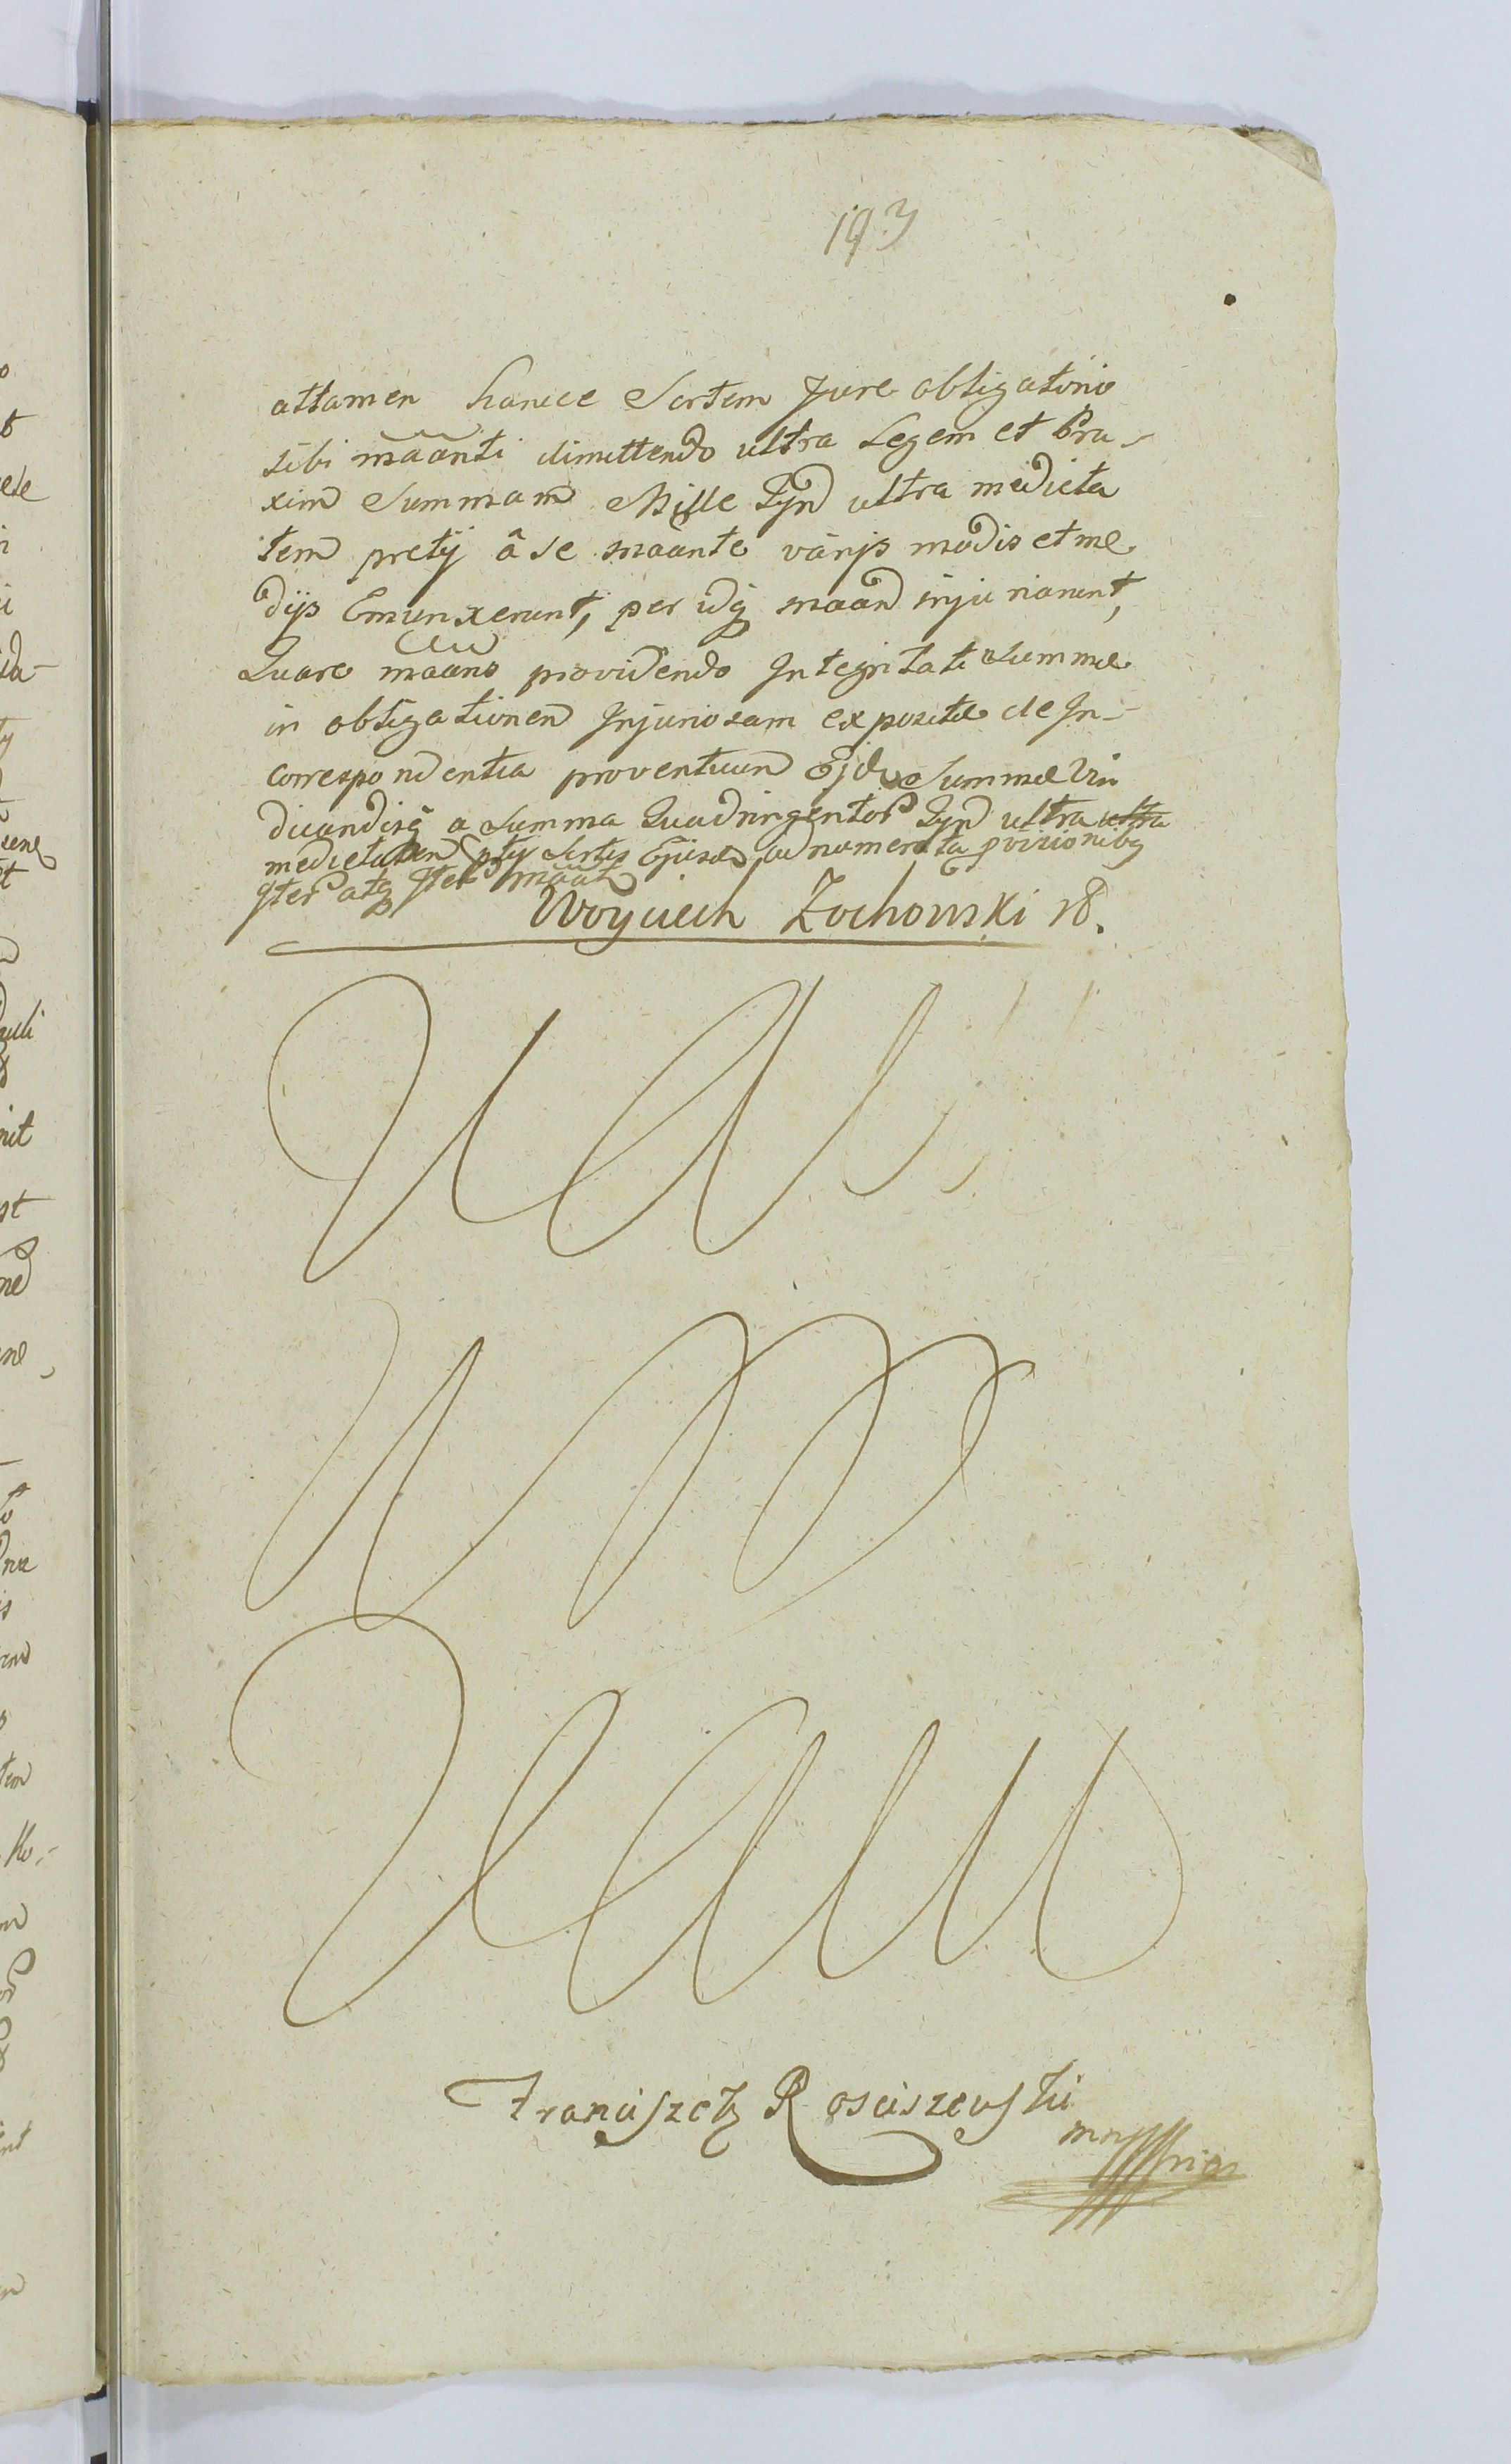 193
attamen hancce Sortem Jure obligatorio
sibi mãanti dimittendo ultra Legem et Pra-
xim Summam Mille Tyn̄ ultra medieta
tem pretij â se maante varijs modis et me
dijs Emunxerunt, per idq̨ maan̄ injuriarunt,
Quare mãans providendo Integritati Summæ
in obligationem Injuriosam expositæ de In-
correspondentia proventuum Ejd Summæ Vin
dicandisq̨ a Summa Quadringentor Tyn̄ ultra ultra
medietatem ptij Sortis Ejusd adnumerata provisionibq̨
Jter atq̨ Jter mãat
Woyciech Zochowski R.
Franciszek Rosciszewski
mpria